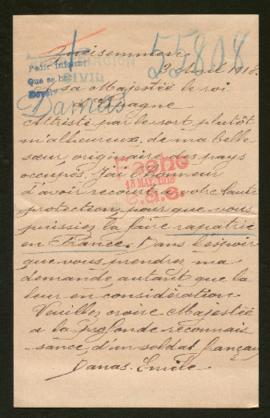 55808
Pedir inform
Que se
CIVIL
Danas
3 Avril 1918.
sa Majestée le roi
d'Espagne
Attristé par le sort plutôt
malheureux, de ma belle
sœur, originaire des pays
occupés. J'ai l'honneur
d'avoir recours à votre haute
protection pour que vous
puissiez la faire rapatrié
en France. Dans l'espoir
que vous prendrez ma
demande autant que la
leur en considération.
Veuillez croire Majestée
a la profonde reconnais
sance, d'un soldat français
Danas. Emile